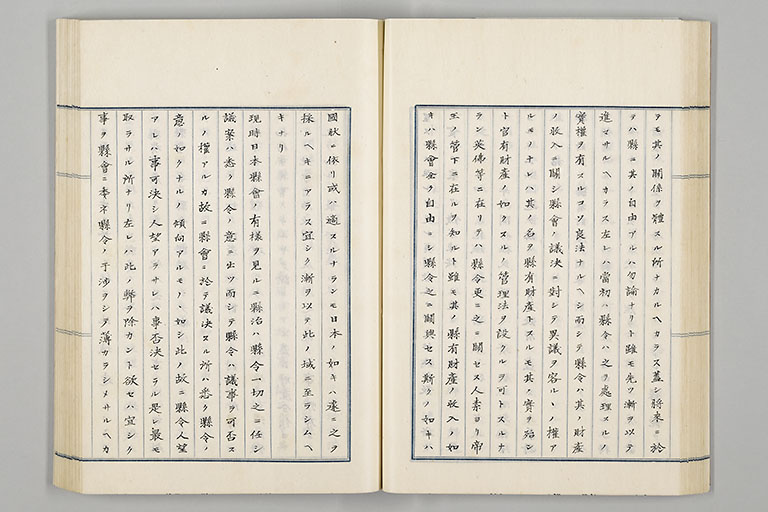 ヲモ其ノ關係ヲ體スル所ナカルヘカラス蓋シ將來ニ於
テハ縣ニ其ノ自由アルハ勿論ナリト雖モ先ツ漸ヲ以テ
進マサルヘカラス左レハ當初ハ縣令ハ之ヲ處理スルノ
實權ヲ有スルコソ良法ナルヘシ而シテ縣令ハ其ノ財産
ノ收入ニ關シ縣會ノ議決ニ對シテ異議ヲ容ルヽノ權ア
ルモノナレハ其ノ名ヲ縣有財産トスルモ其ノ實ヲ殆ン
ト官有財産ノ如クスルノ管理法ヲ設クルヲ可トスルナ
ラン英佛等ニ在リテハ縣令更ニ之ニ關セス人素ヨリ帝
王ノ管下ニ在ルヲ知ルト雖モ其ノ縣有財産ノ收入ノ如
キハ縣會全ク自由ニシ縣令之ニ關與セス斯クノ如キハ
國狀ニ依リ或ハ適スルナランモ日本ノ如キハ遽ニ之ヲ
採ルヘキニアラス宜シク漸ヲ以テ此ノ域ニ至ラシムヘ
キナリ
現時日本縣會ノ有樣ヲ見ルニ縣治ハ縣令一切之ニ任シ
議案ハ悉ク縣令ノ意ニ出ツ而シテ縣令ハ議事ヲ可否ス
ルノ權アルカ故ニ縣會ニ於テ議決スル所ハ悉ク縣令ノ
意ノ如クナルノ傾向アルモノヽ如シ此ノ故ニ縣令人望
アレハ事可決シ人望アラサレハ事否決セラル是レ最モ
取ラサル所ナリ左レハ此ノ弊ヲ除カント欲セハ宜シク
事ヲ縣會ニ委ネ縣令ノ干涉ヲシテ薄カラシメサルヘカ